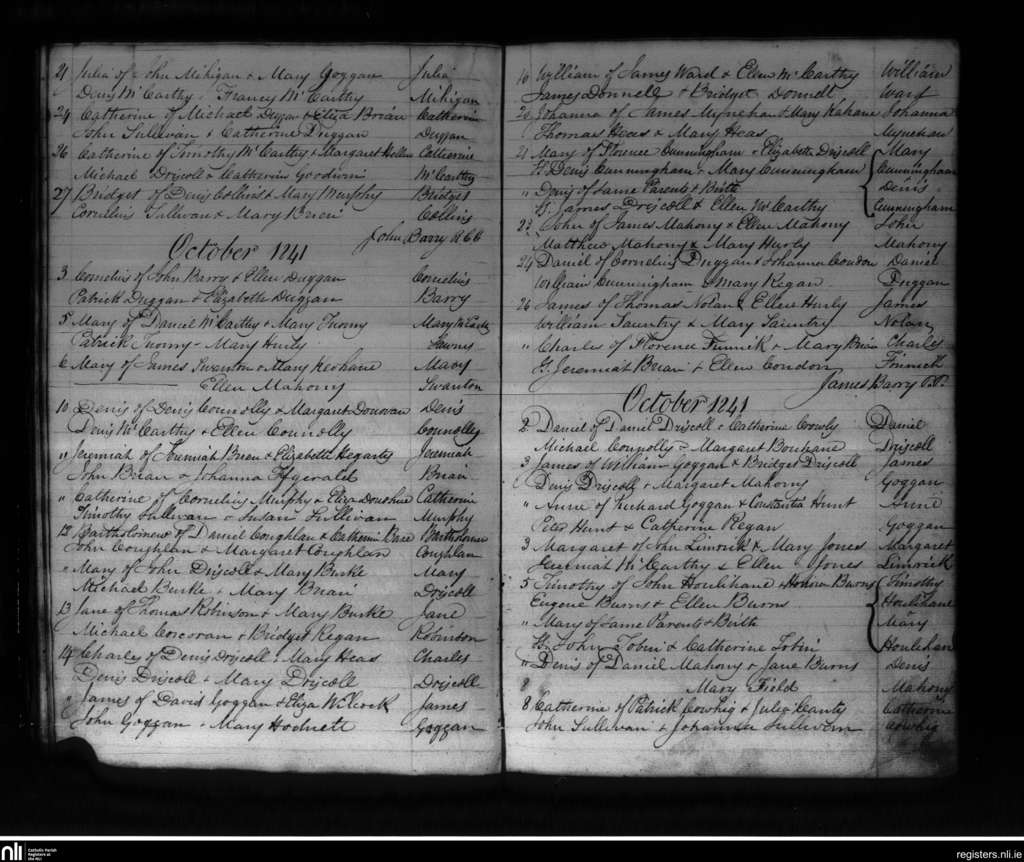 21 Julia of John Mihigan & Mary Goggan Julia
Denis McCarthy, Francy McCarthy Mihigan
24 Catherine of Michael Duggan & Eliza Brian Catherine
John Sullivan & Catherine Duggan Duggan
26 Catherine of Timothy McCarthy & Margaret Catherine
Michael Driscoll & Catherin Goodwin McCarthy
27 Bridget of Denis Collins & Mary Murphy Bridget
Cornelius Sullivan & Mary Collins
John Barry
October 1241
3 Cornelius of John Barry & Ellen Duggan Cornelius
Patrick Duggan & Elizabeth Duggan Barry
5 Mary of Daniel McCarthy & Mary Twomy Mary McCarthy
Patrick Twomy - Mary Hurly
6 Mary of James Swanton & Mary Keohane Mary
Ellen Mahony Swanton
10 Denis of Denis Connolly & Margaret Donovan Denis
Denis McCarthy & Ellen Connolly Connolly
" Jeremiah of Jeremiah Brien & Elizabeth Hegarty Jeremiah
John Brian & Johanna Brian
" Catherine of Cornelius Murphy & Eliza Donohue Catherine
Timothy Sullivan & Susan Sullivan Murphy
12 Bartholomew of Daniel Coughlan & Catherine Bartholomew
John Coughlan & Margaret Coughlan Coughlan
" Mary of John Driscoll & Mary Burke Mary
Michael Burke & Mary Brian Driscoll
13 Jane of Thomas Robinson & Mary Burke Jane
Michael Corcoran & Bridget Regan Robinson
14 Charles of Denis Driscoll & Mary Heas Charles
Denis Driscoll & Mary Driscoll Driscoll
" James of David Goggan & Eliza Wilcock James
John Goggan & Mary Hodnett Goggan
16 William of James Ward & Ellen McCarthy William
James Donnell & Bridget Donnell Ward
20 Johanna of James Mynehan & Mary Kahane Johanna
Thomas Heas & Mary Heas Mynehan
21 Mary of Florence Cunningham & Elizabeth Driscoll Mary
G. Denis Cunningham & Mary Cunningham Cunningham
" Denis of Same Parents & Birth Denis
G. James Driscoll & Ellen McCarthy Cunningham
23 John of James Mahony & Ellen Mahony John
Matthew Mahony & Mary Hurly Mahony
24 Daniel of Cornelius Duggan & Johanna Condon Daniel
William Cunningham & Mary Regan Duggan
26 James of Thomas Nolan & Ellen Hurly James
William Sauntry & Mary Sauntry Nolan
" Charles of Florence Finnick & Mary Brian Charles
G. Jeremiah Brian & Ellen Condon Finnick
James Barry P.P.
October 1241
2 Daniel of Daniel Driscoll & Catherine Crowly Daniel
Michael Connolly & Margaret Bouhane Driscoll
3 James of William Goggan & Bridget Driscoll James
Denis Driscoll & Margaret Mahony Goggan
" Anne of Richard Goggan & Constantia Hunt Anne
Peter Hunt & Catherine Regan Goggan
3 Margaret of John Limrick & Mary Jones Margaret
Jeremiah McCarthy & Ellen Jones Limrick
5 Timothy of John Houlihane & Honora Burns Timothy
Eugene Burns & Ellen Burns Houlihane
" Mary of Same Parents & Birth Mary
G. John Tobin & Catherine Tobin Houlehan
" Denis of Daniel Mahony & Jane Burns Denis
Mary Field Mahony
8 Catherine of Patrick Cowhig & Jules Canty Catherine
John Sullivan & Johanna Sullivan Cowhig
nli Catholic Parish Registers at the NLI
registers.nli.ie